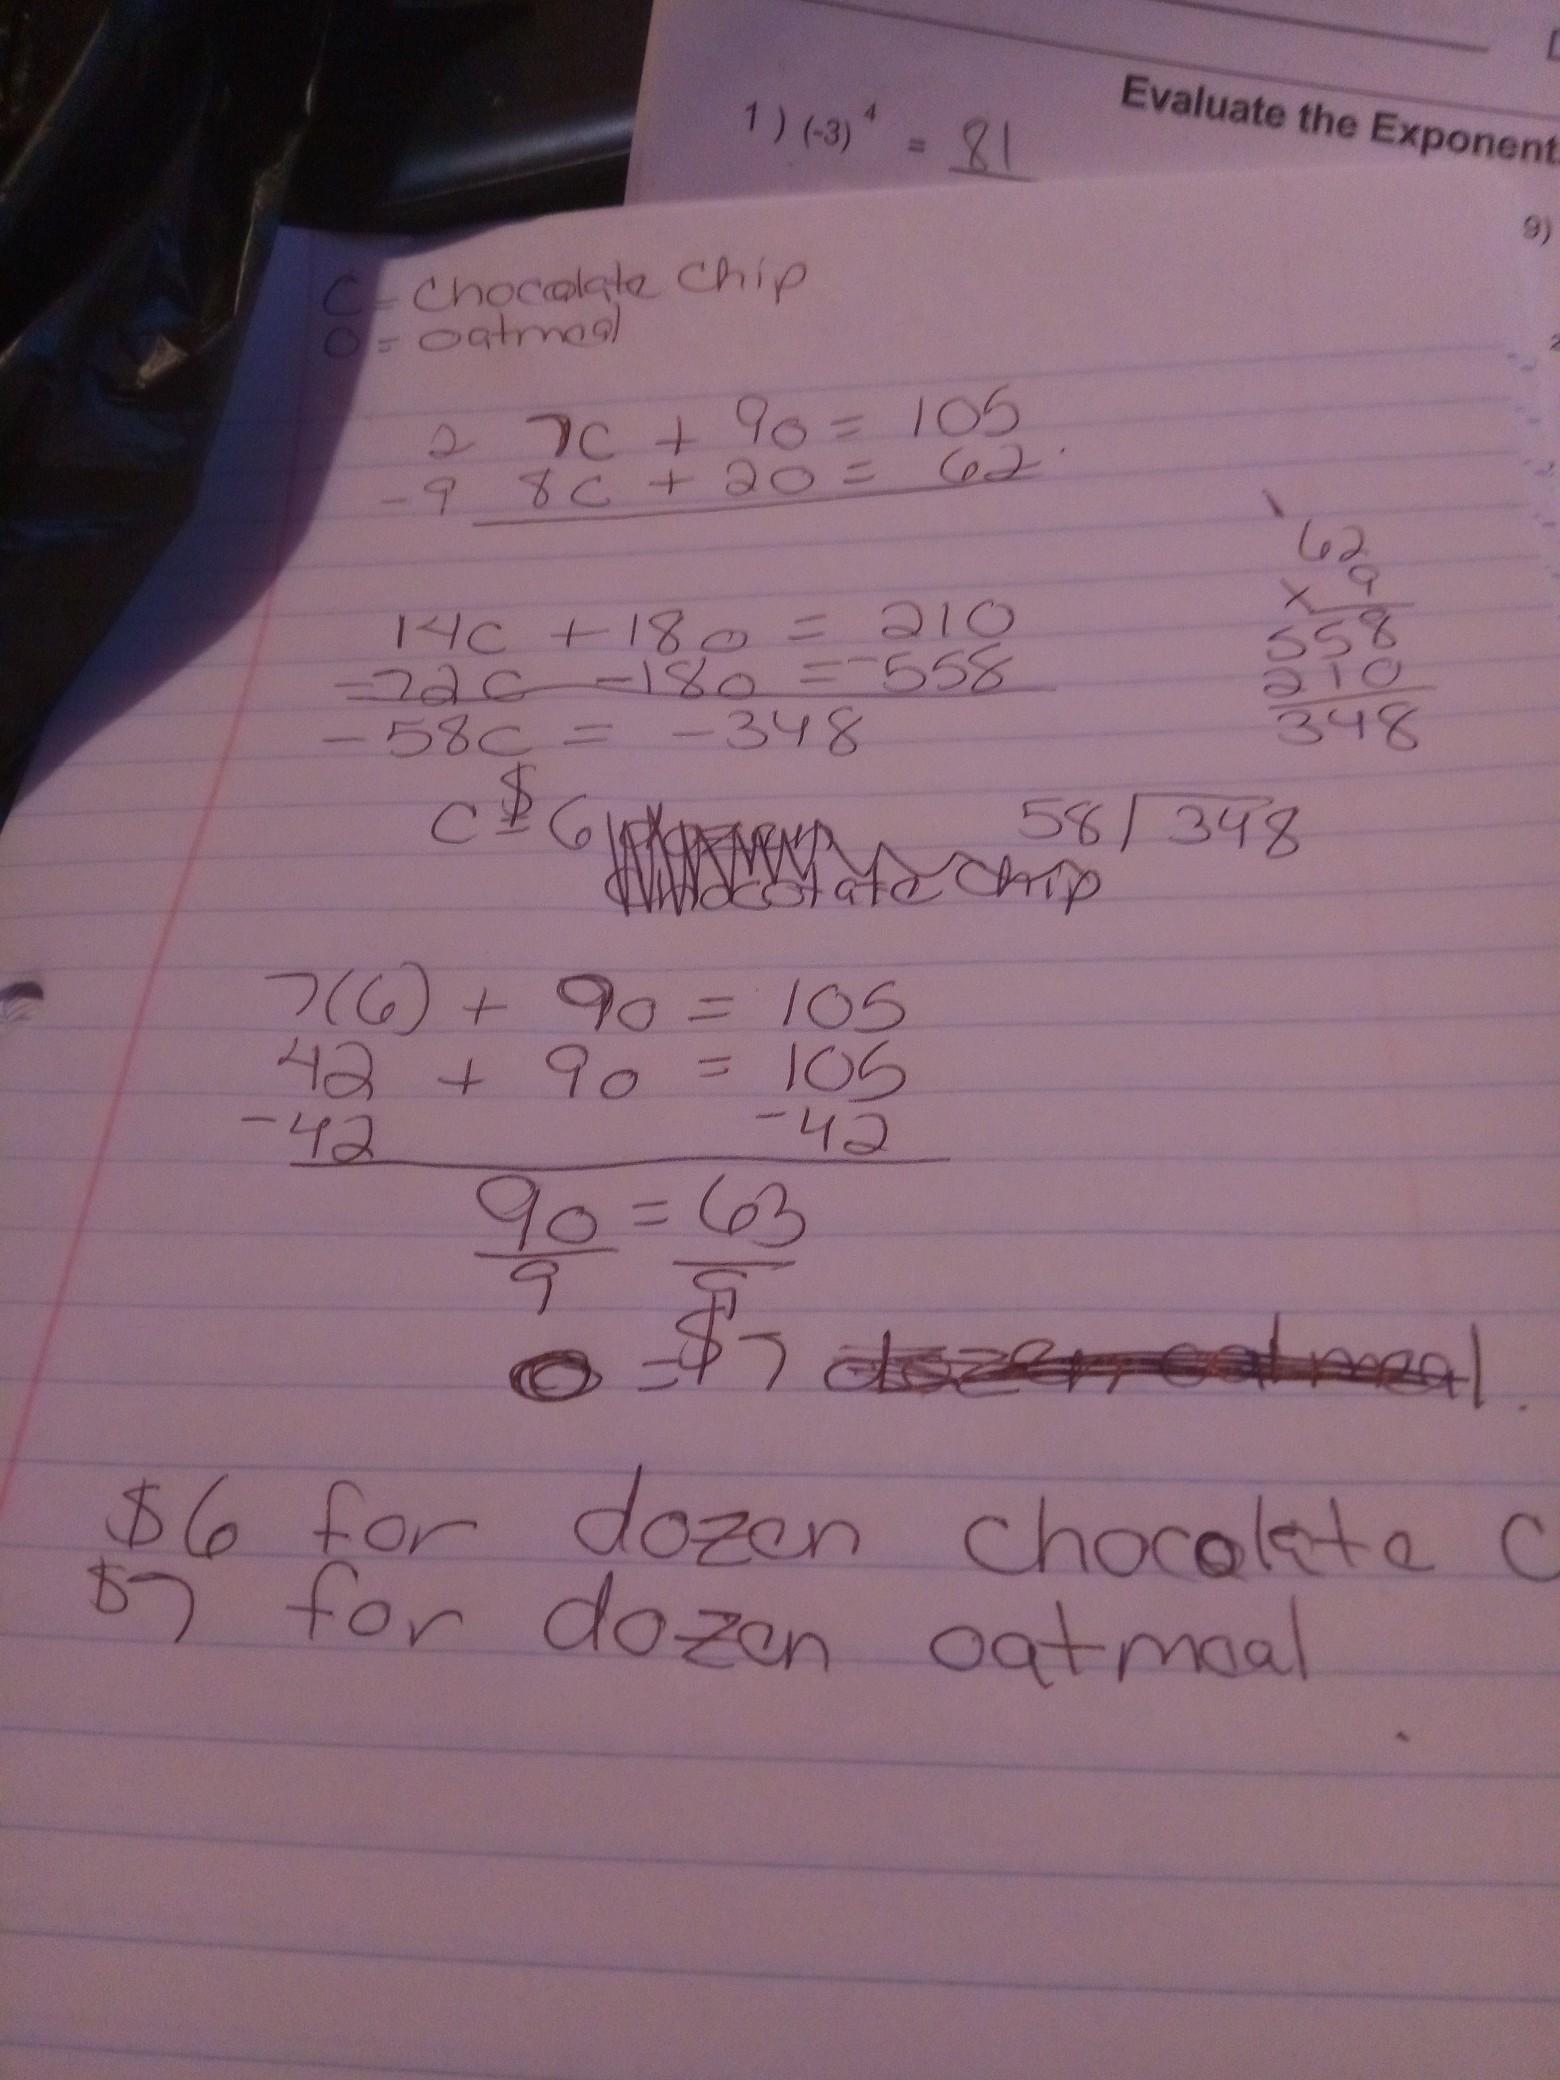 Evaluate the Exponent
1) (-3)⁴ = 81
9)
C = Chocolate Chip
O = Oatmeal
2 7C + 9o = 105
-9 8C + 2o = 62
14C + 18o = 210
-72C -18o = -558
-58C = -348
62
x 9
558
210
348
C = $6
58 348
chip
7(6) + 9o = 105
42 + 9o = 105
-42 -42
9o = 63
9 9
o = $7 dozen oatmeal.
$6 for dozen chocolate C
$7 for dozen oatmeal